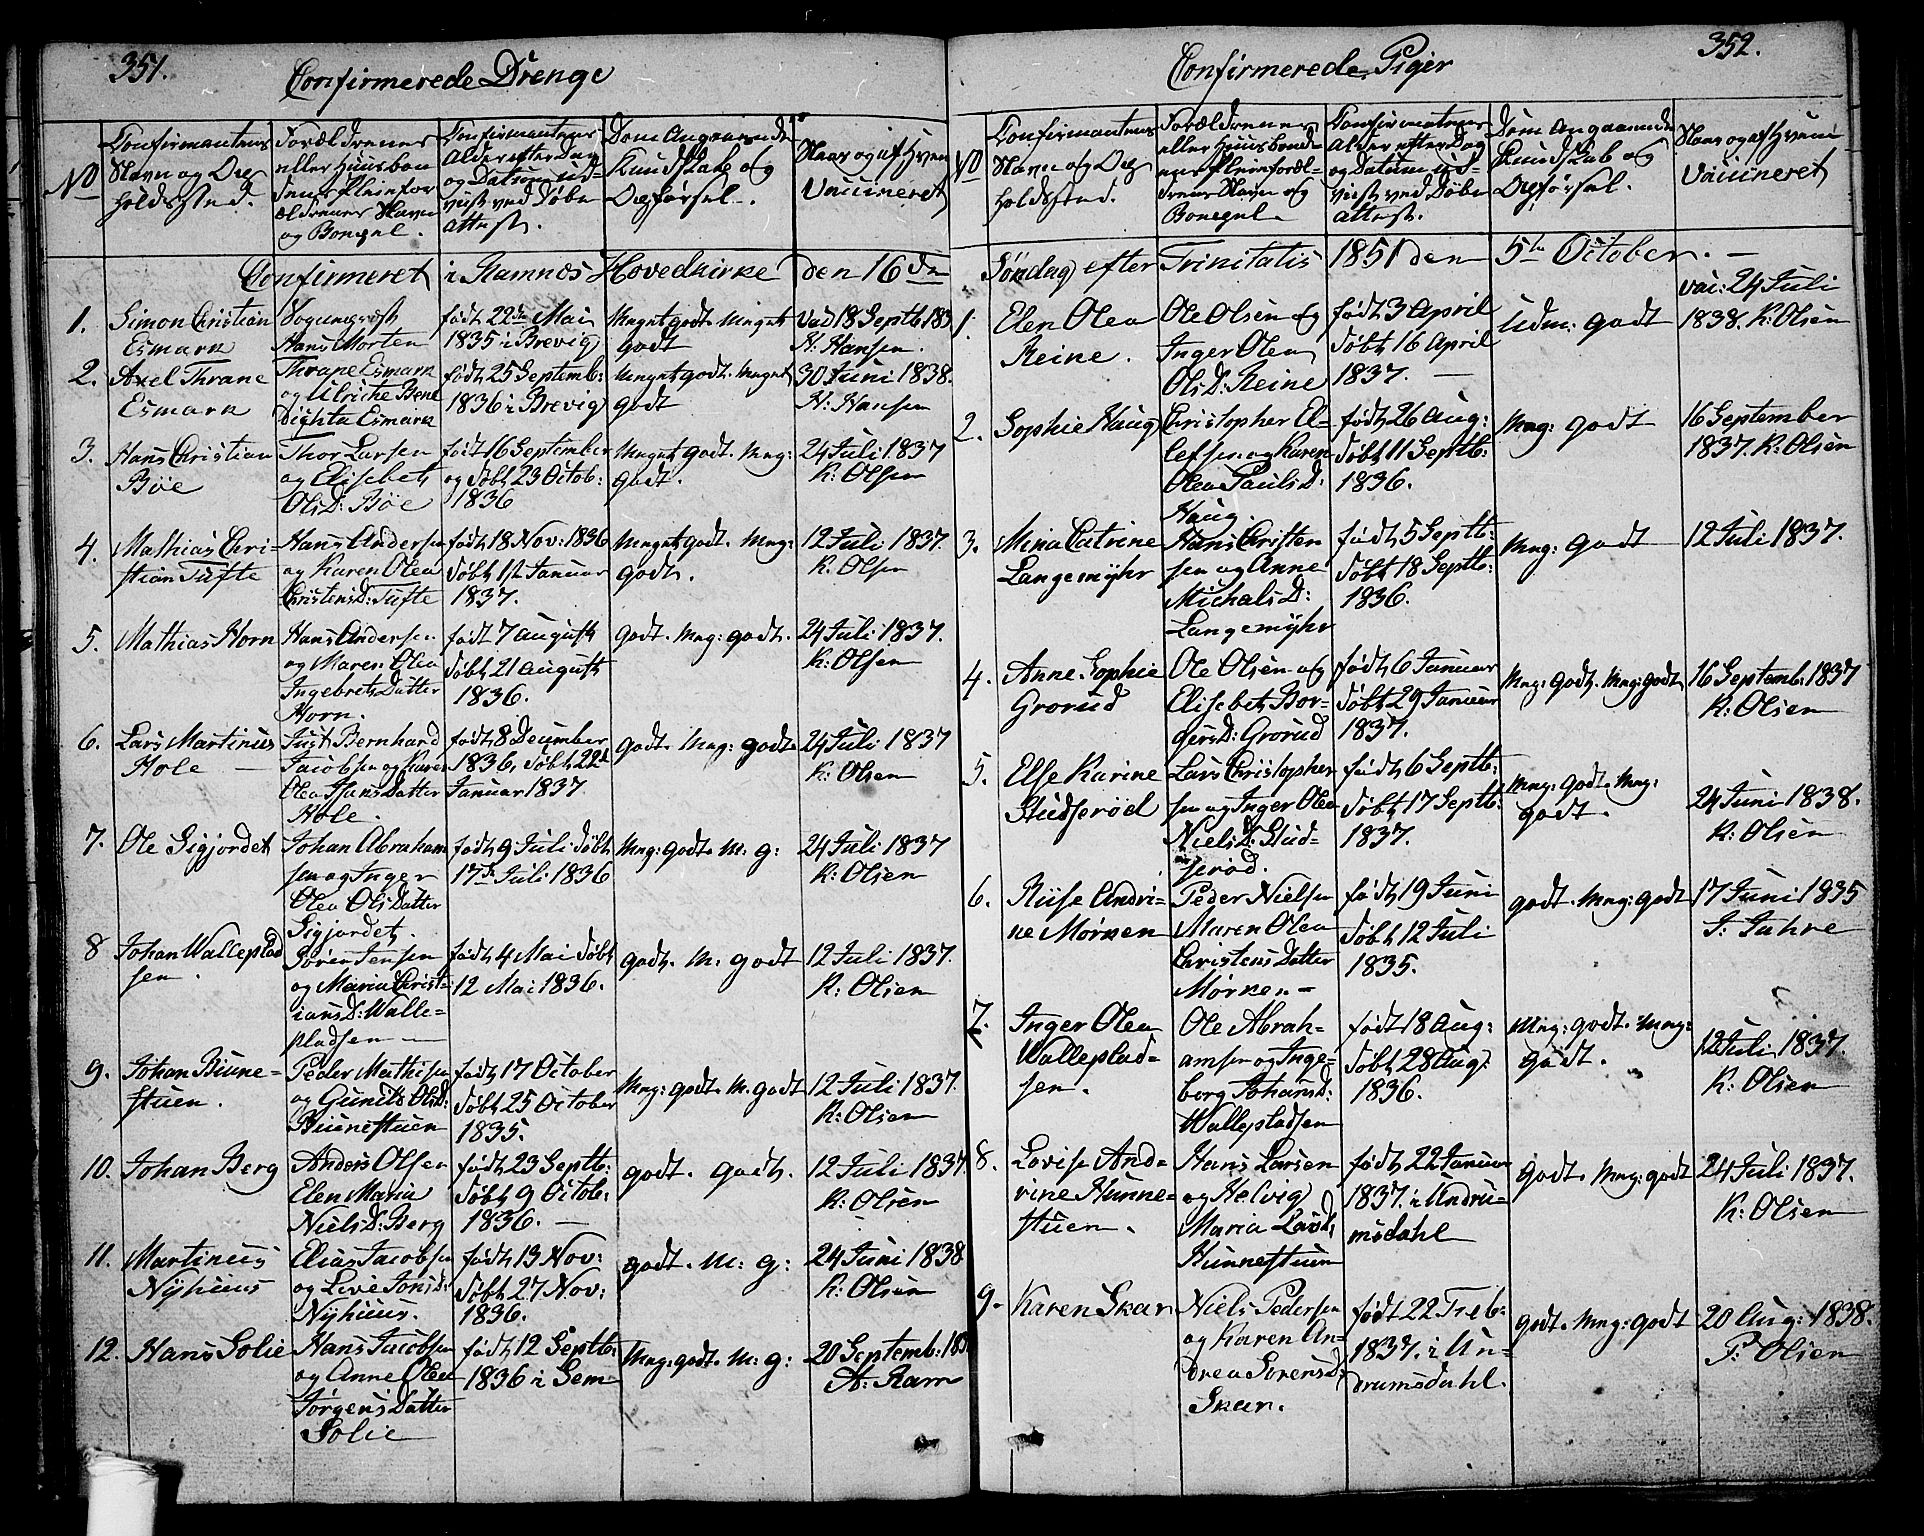 351.
Confirmerede Drenge
No
Confirmantens
Navn og Op
holdssted.
Forældrenes
eller Huusbon
dens Pleiefor
ældrenes Navn
og Bopæl.
Confirmantens
Alder efter Dag
og Datum ud-
viist ved Døbe
attest.
Dom Angaaende
Kundskab og
Opførsel.
Naar og af Hvem
Vaccineret
Confirmeret i Ramnæs Hovedkirke den 16de
1.
Simon Christian
Esmark
Sogneprest
Hans Morten
født 22de Mai
1835 i Brevig
Meget godt. Meget
godt
Vac 18 Septb 183
N. Hansen.
2.
Axel Thrane
Esmark
Thrane Esmark
og Ulriche Bene
Dighta Esmark
født 25 Septemb:
1836 i Brevig
Meget godt. Meget
godt
30 Juni 1838.
N. Hansen
3.
Hans Christian
Bøe
Thor Larsen
og Elisebet
OlsD: Bøe
født 16 September
og døbt 23 Octob:
1836
Meget godt. Meg:
godt.
24 Juli 1837
K: Olsen
4.
Mathias Chri-
stian Tufte
Hans Andersen
og Karen Olea
ChristensD: Tufte
født 18 Nov: 1836
Døbt 1st Januar
1837.
Meget godt. Meg:
godt.
12 Juli 1837.
K. Olsen
5.
Mathias Horn
Hans Andersen
og Maren Olea
Ingebrets Datter
Horn.
født 7 August
Døbt 21 August
1836.
godt. Meg: godt.
24 Juli 1837.
K: Olsen
6.
Lars Martinus
Hole
Just Bernhard
Jacobsen og Karen
Olea Hans Datter
Hole.
født 8 December
1836, døbt 22d
Januar 1837
godt. Meg: godt.
24 Juli 1837
K: Olsen
7.
Ole Sigjordet
Johan Abraham
sen og Inger
Olea Ols Datter
Sigjordet.
født 9 Juli døbt
17de Juli 1836
Meg: godt. M. g:
24 Juli 1837
K: Olsen
8
Johan Walleplad
sen.
Søren Jensen
og Maria Christ-
iansD: Walle-
pladsen
født 4 Mai døbt
12 Mai 1836.
godt. M. godt
12 Juli 1837.
K: Olsen
9.
Johan Biune-
stuen.
Peder Mathisen
og Gunild OlsD:
Biunestuen
født 17 October
Døbt 25 October
1835.
Meg: godt. M. godt
12 Juli 1837.
K: Olsen
10.
Johan Berg
Anders Olsen
Elen Maria
NielsD: Berg
født 23 Septb:
Døbt 9 Octob:
1836.
godt. godt.
12 Juli 1837.
K: Olsen
11.
Martinus
Nyhuus
Elias Jacobsen
og Live JonsD:
Nyhuus.
født 13 Nov:
Døbt 27 Nov:
1836.
godt. M: g:
24 Juni 1838
K: Olsen
12.
Hans Solie
Hans Jacobsen
og Anne Olea
Jørgens Datter
Solie
født 12 Septb:
1836 i Sem
Meg: godt. M: g:
20 Septemb: 183
A: Ram
352.
Confirmerede Piger
No
Confirmantens
Navn og Op
holdssted.
Forældrenes
eller Huusbond-
ens Pleieforæl-
drenes Navn og
Bopæl.
Confirmantens
Alder efter Dag
og Datum ud-
viist ved Døbe
attest.
Dom Angaaende
Kundskab og
Opførsel.
Naar og af Hvem
Vaccineret
Søndag efter Trinitatis 1851 den 5te October.
1.
Elen Olea
Reine.
Ole Olsen og
Inger Olea
OlsD: Reine
født 3 April
Døbt 16 April
1837.
Udm: godt
Vac: 24 Juli
1838. K: Olsen
2.
Sophie Haug
Christopher El-
lefsen og Karen
Olea PaulsD:
Haug.
født 26 Aug:
Døbt 11 Septb:
1836.
Meg: godt
16 September
1837. K: Olsen
3.
Mina Catrine
Langemyhr
Hans Christen
sen og Anne
MichalsD:
Langemyhr
født 5 Septb:
Døbt 18 Septb:
1836.
Meg: godt
12 Juli 1837.
4.
Anne Sophie
Grorud
Ole Olsen og
Elisebet Bor-
gersD: Grorud
født 6 Januar
Døbt 29 Januar
1837.
Meg: godt. Meg: godt
16 Septemb: 1837
K: Olsen
5.
Else Karine
Studserød
Lars Christopher
sen og Inger Olea
NielsD: Stud-
serød.
født 6 Septb:
Døbt 17 Septb:
1837.
Meg: godt. Meg:
godt.
24 Juni 1838.
K: Olsen
6.
Riise Andri-
ne Mørken
Peder Nielsen
Maren Olea
Christens Datter
Mørken.
født 19 Juni
Døbt 12 Juli
1835.
godt. Meg: godt
17 Juni 1835
J: Jahre
7.
Inger Olea
Walleplad-
sen.
Ole Abrah-
amsen og Inge-
borg JohansD:
Wallepladsen
født 18 Aug:
Døbt 28 Aug:
1836.
Meg: godt. Meg:
godt.
12 Juli 1837.
K: Olsen
8.
Lovise And-
rine Hunne-
stuen.
Hans Larsen
og Helvig
Maria LarsD:
Hunnestuen
født 22 Januar
1837. i Undru-
msdahl
godt. Meg: godt
24 Juli 1837.
K: Olsen
9.
Karen Skar
Niels Pedersen
og Karen An-
drea SørensD:
Skar.
født 22 Feb:
1837. i Un-
drumsdahl.
godt. Meg: godt
20 Aug: 1838.
P: Olsen